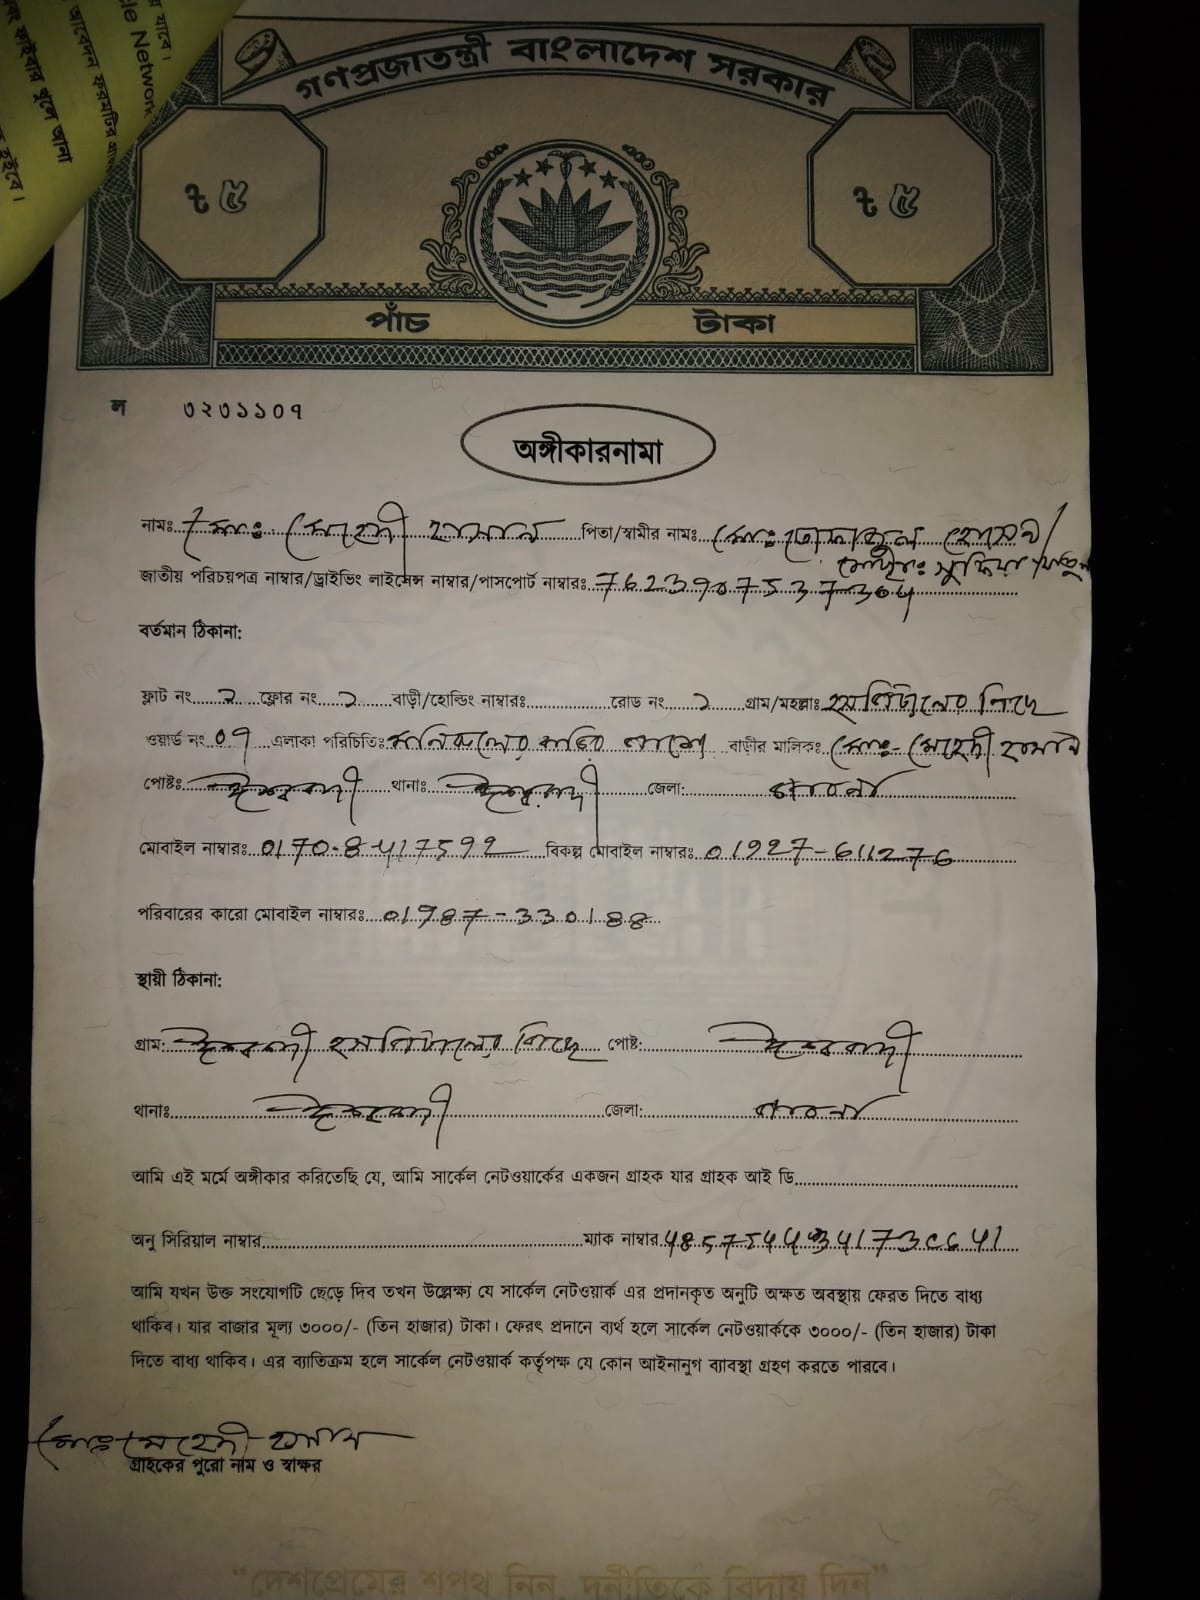 যাবে।
cle Network
আবেদন ফরমটির
ফাইবার খুলে আনা
হইবে।
গণপ্রজাতন্ত্রী বাংলাদেশ সরকার
৳ ৫
৳ ৫
পাঁচ টাকা
ল ৩২৩১১০৭
অঙ্গীকারনামা
নামঃ মোঃ মেহেদী হাসান পিতা/স্বামীর নামঃ মোঃ হোসেন/
জাতীয় পরিচয়পত্র নাম্বার/ড্রাইভিং লাইসেন্স নাম্বার/পাসপোর্ট নাম্বারঃ 7623907537304
বর্তমান ঠিকানা:
ফ্লাট নং ২ ফ্লোর নং ১ বাড়ী/হোল্ডিং নাম্বারঃ রোড নং ১ গ্রাম/মহল্লাঃ হসপিটালের পিছে
ওয়ার্ড নং 07 এলাকা পরিচিতিঃ বাড়ির পাশে বাড়ীর মালিকঃ মোঃ- মেহেদী হাসান
পোষ্টঃ ঈশ্বরদী থানাঃ ঈশ্বরদী জেলা: পাবনা
মোবাইল নাম্বারঃ 0170-8-417592 বিকল্প মোবাইল নাম্বারঃ 01927-611276
পরিবারের কারো মোবাইল নাম্বারঃ 01787-330188
স্থায়ী ঠিকানা:
গ্রাম: ঈশ্বরদী হসপিটালের পিছে পোষ্ট: ঈশ্বরদী
থানাঃ ঈশ্বরদী জেলা: পাবনা
আমি এই মর্মে অঙ্গীকার করিতেছি যে, আমি সার্কেল নেটওয়ার্কের একজন গ্রাহক যার গ্রাহক আই ডি
অনু সিরিয়াল নাম্বার ম্যাক নাম্বার
আমি যখন উক্ত সংযোগটি ছেড়ে দিব তখন উল্লেক্ষ্য যে সার্কেল নেটওয়ার্ক এর প্রদানকৃত অনুটি অক্ষত অবস্থায় ফেরত দিতে বাধ্য
থাকিব। যার বাজার মূল্য ৩০০০/- (তিন হাজার) টাকা। ফেরৎ প্রদানে ব্যর্থ হলে সার্কেল নেটওয়ার্ককে ৩০০০/- (তিন হাজার) টাকা
দিতে বাধ্য থাকিব। এর ব্যাতিক্রম হলে সার্কেল নেটওয়ার্ক কর্তৃপক্ষ যে কোন আইনানুগ ব্যাবস্থা গ্রহণ করতে পারবে।
মোঃ মেহেদী হাসান
গ্রাহকের পুরো নাম ও স্বাক্ষর
“দেশপ্রেমের শপথ নিন, দুর্নীতিকে বিদায় দিন”